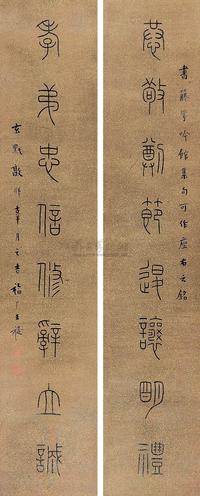 書藤花吟館集句可作座右之銘
恭敬撙節退讓明禮
孝弟忠信修辭立誠
玄黓敦牂辜月之吉 福厂王禔